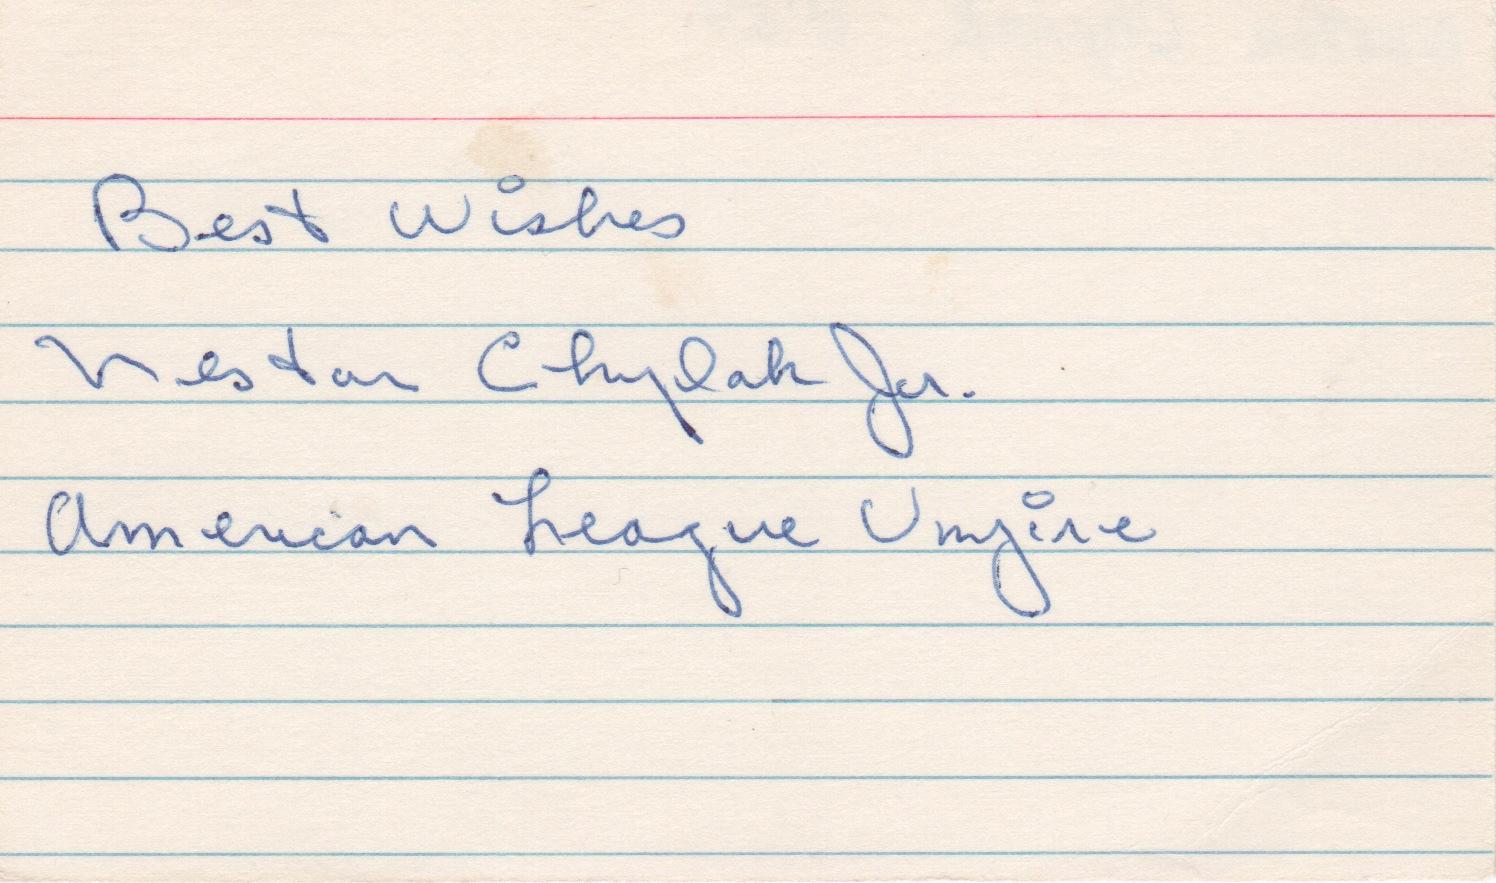 Best Wishes
Nestor Chylak Jr.
American League Umpire